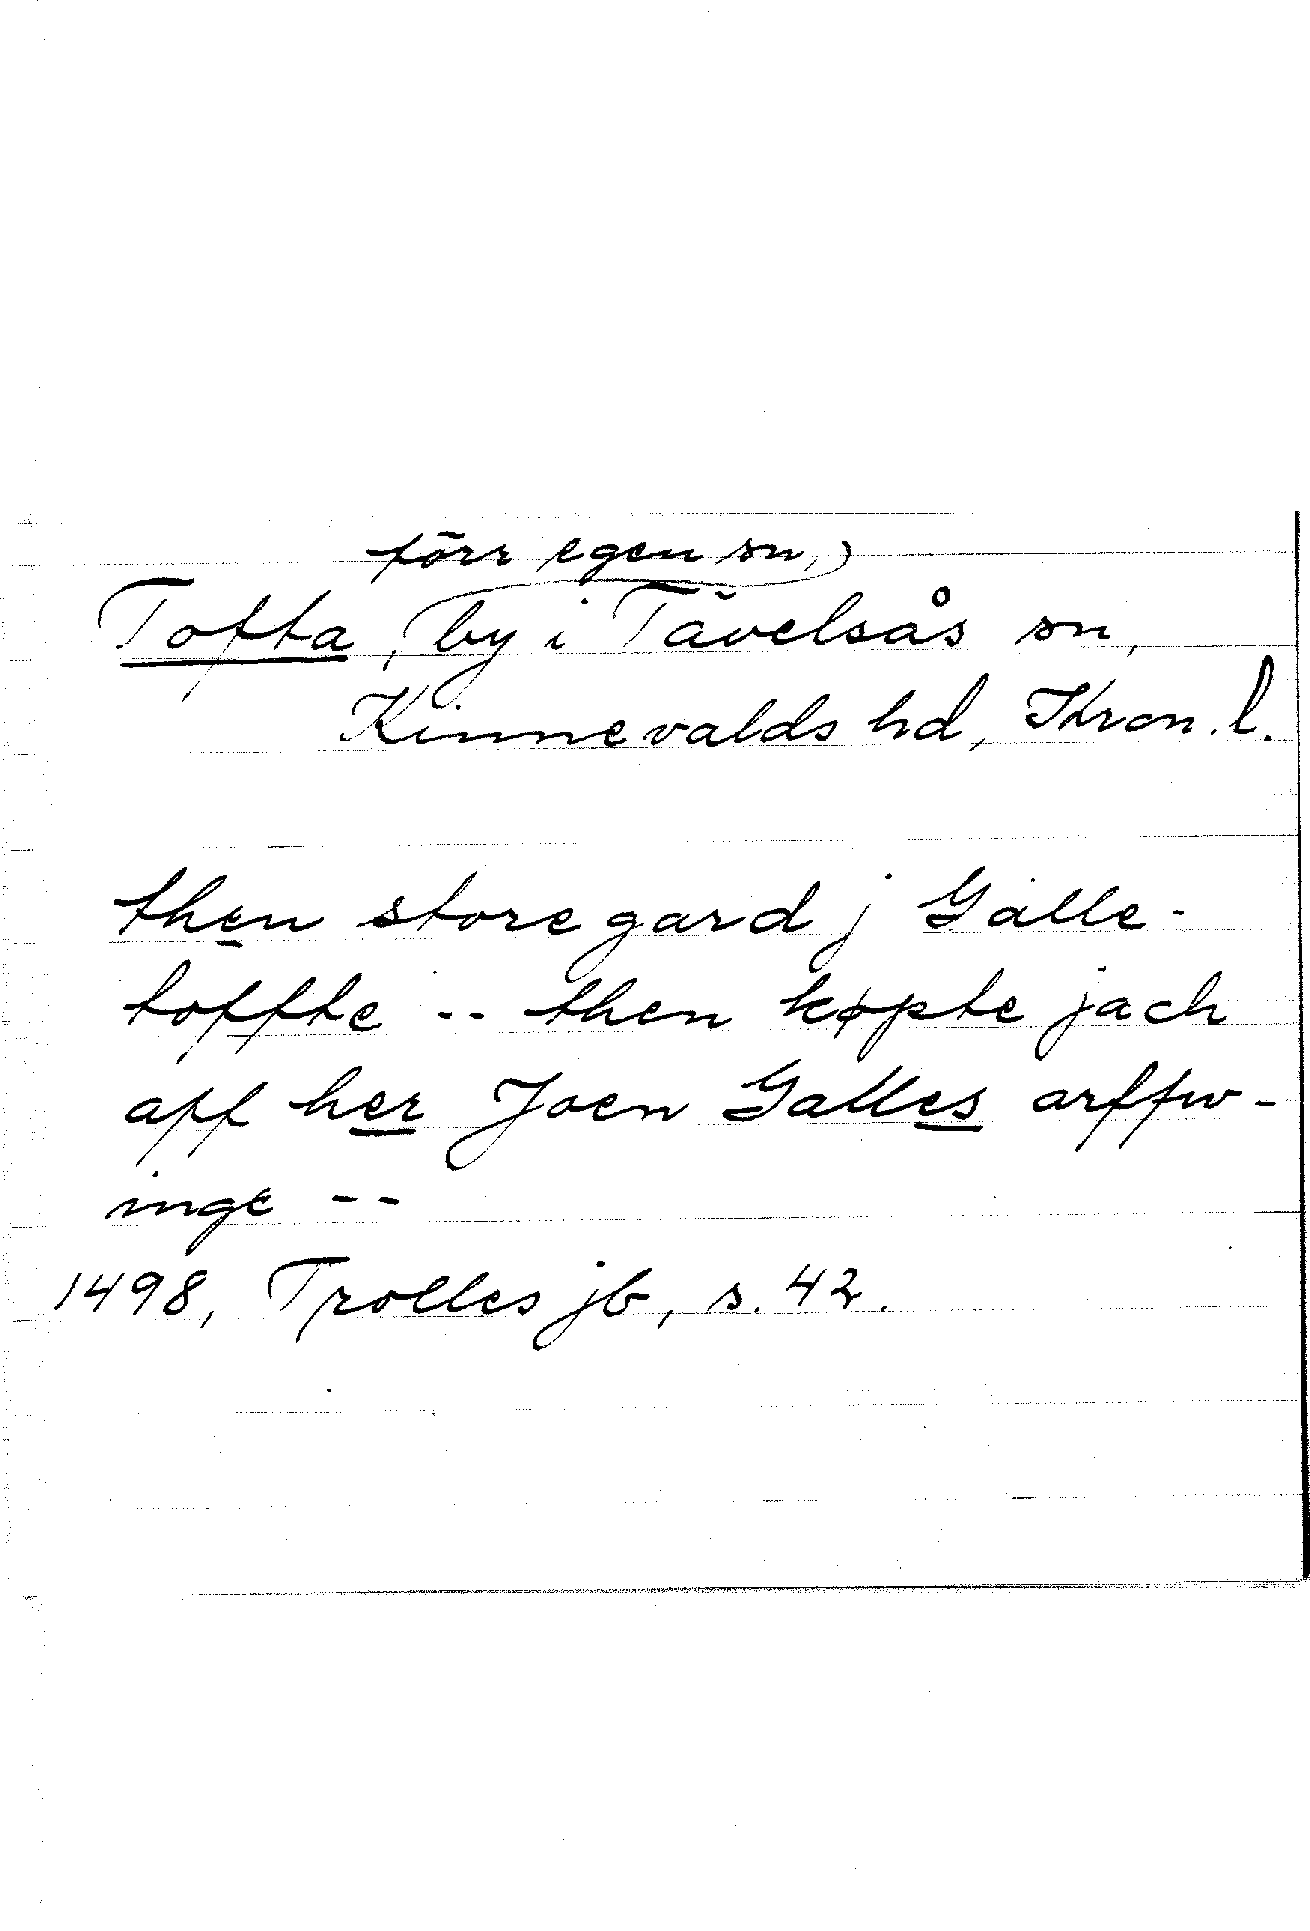 förr egen sn,
Tofta, by i Tävelsås sn,
Kinnevalds hd, Kron. l.
then store gard j Galle-
toffte -- then køpte jach
aff her Joen Galles arffw-
inge --
1498, Trolles jb, s. 42.